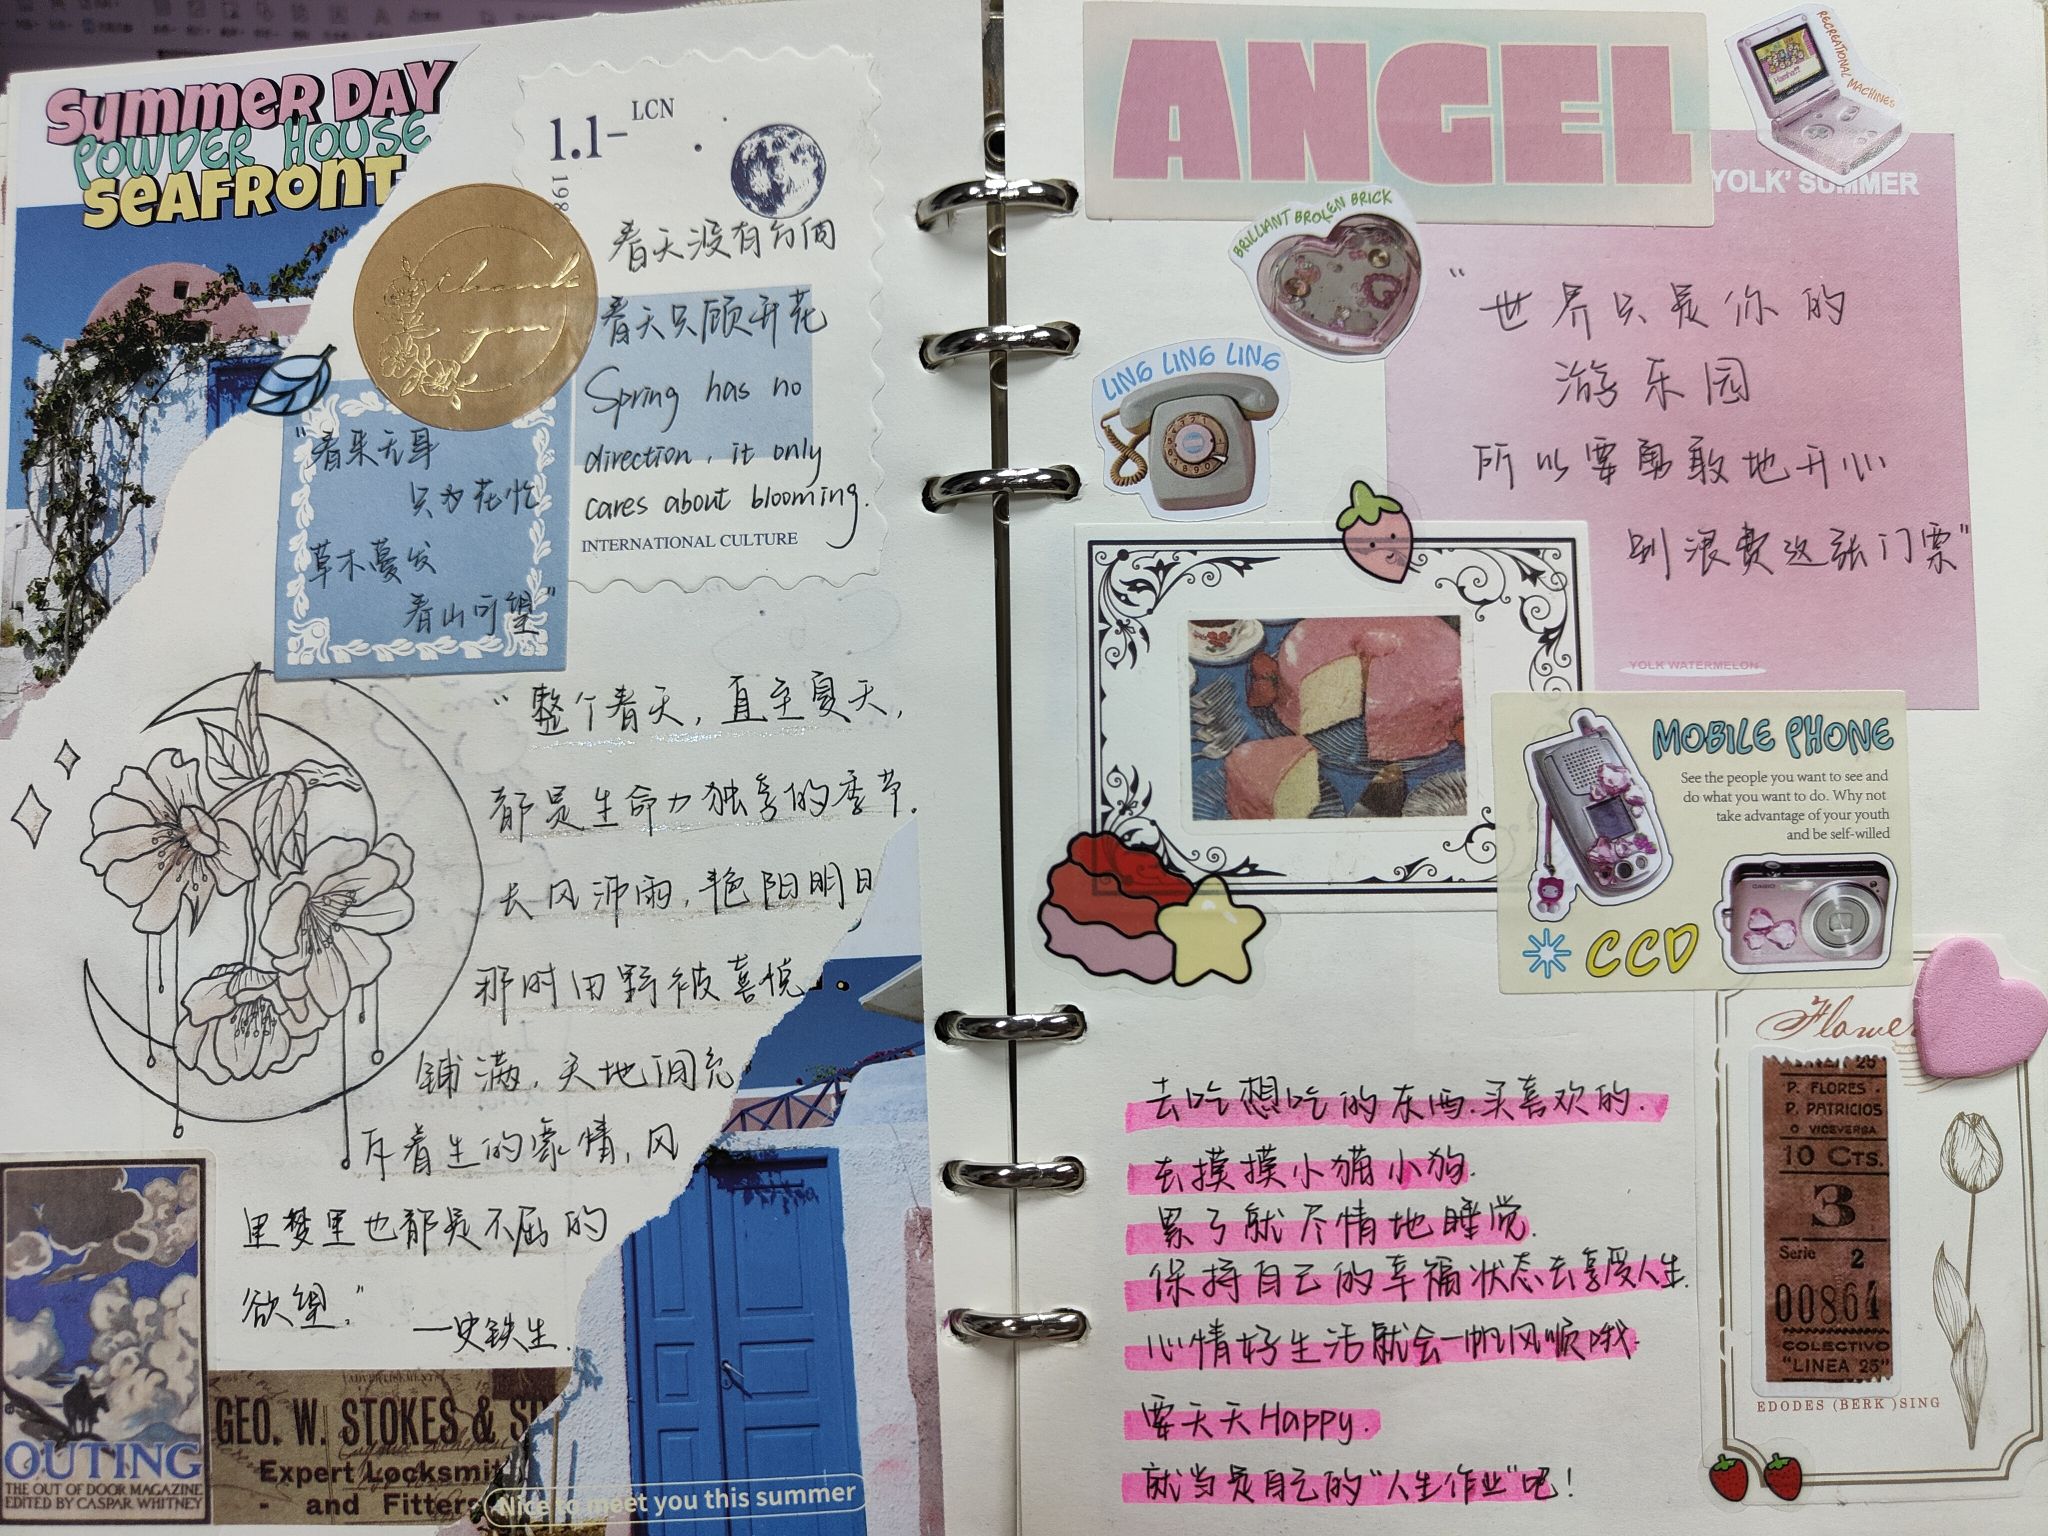 SUMMER DAY
POWDER HOUSE
SEAFRONT
thank
you
1.1-LCN
198
春天没有方向
春天只顾开花
Spring has no
direction, it only
cares about blooming.
INTERNATIONAL CULTURE
"春来无事
只为花忙
草木蔓发
春山可望"
"整个春天,直至夏天,
都是生命力独享的季节.
长风沛雨,艳阳明月
那时田野被喜悦
铺满,天地间充
斥着生的豪情,风
里梦里也都是不屈的
欲望."
—史铁生.
OUTING
THE OUT OF DOOR MAGAZINE
EDITED BY CASPAR WHITNEY
ADVERTISEMENTS
GEO. W. STOKES & S
Expert Locksmit
- and Fitters
Nice to meet you this summer
ANGEL
RECREATIONAL MACHINES
YOLK' SUMMER
BRILLIANT BROKEN BRICK
LING LING LING
"世界只是你的
游乐园
所以要勇敢地开心
别浪费这张门票"
YOLK WATERMELON
MOBILE PHONE
See the people you want to see and
do what you want to do. Why not
take advantage of your youth
and be self-willed
CASIO
CCD
Flower
P. FLORES
P. PATRICIOS
O VICEVERSA
10 CTS.
3
Serie 2
00864
COLECTIVO
"LINEA 25"
EDODES (BERK )SING
去吃想吃的东西.买喜欢的.
去摸摸小猫小狗.
累了就尽情地睡觉.
保持自己的幸福状态去享受人生.
心情好生活就会一帆风顺哦.
要天天Happy.
就当是自己的"人生作业"吧!